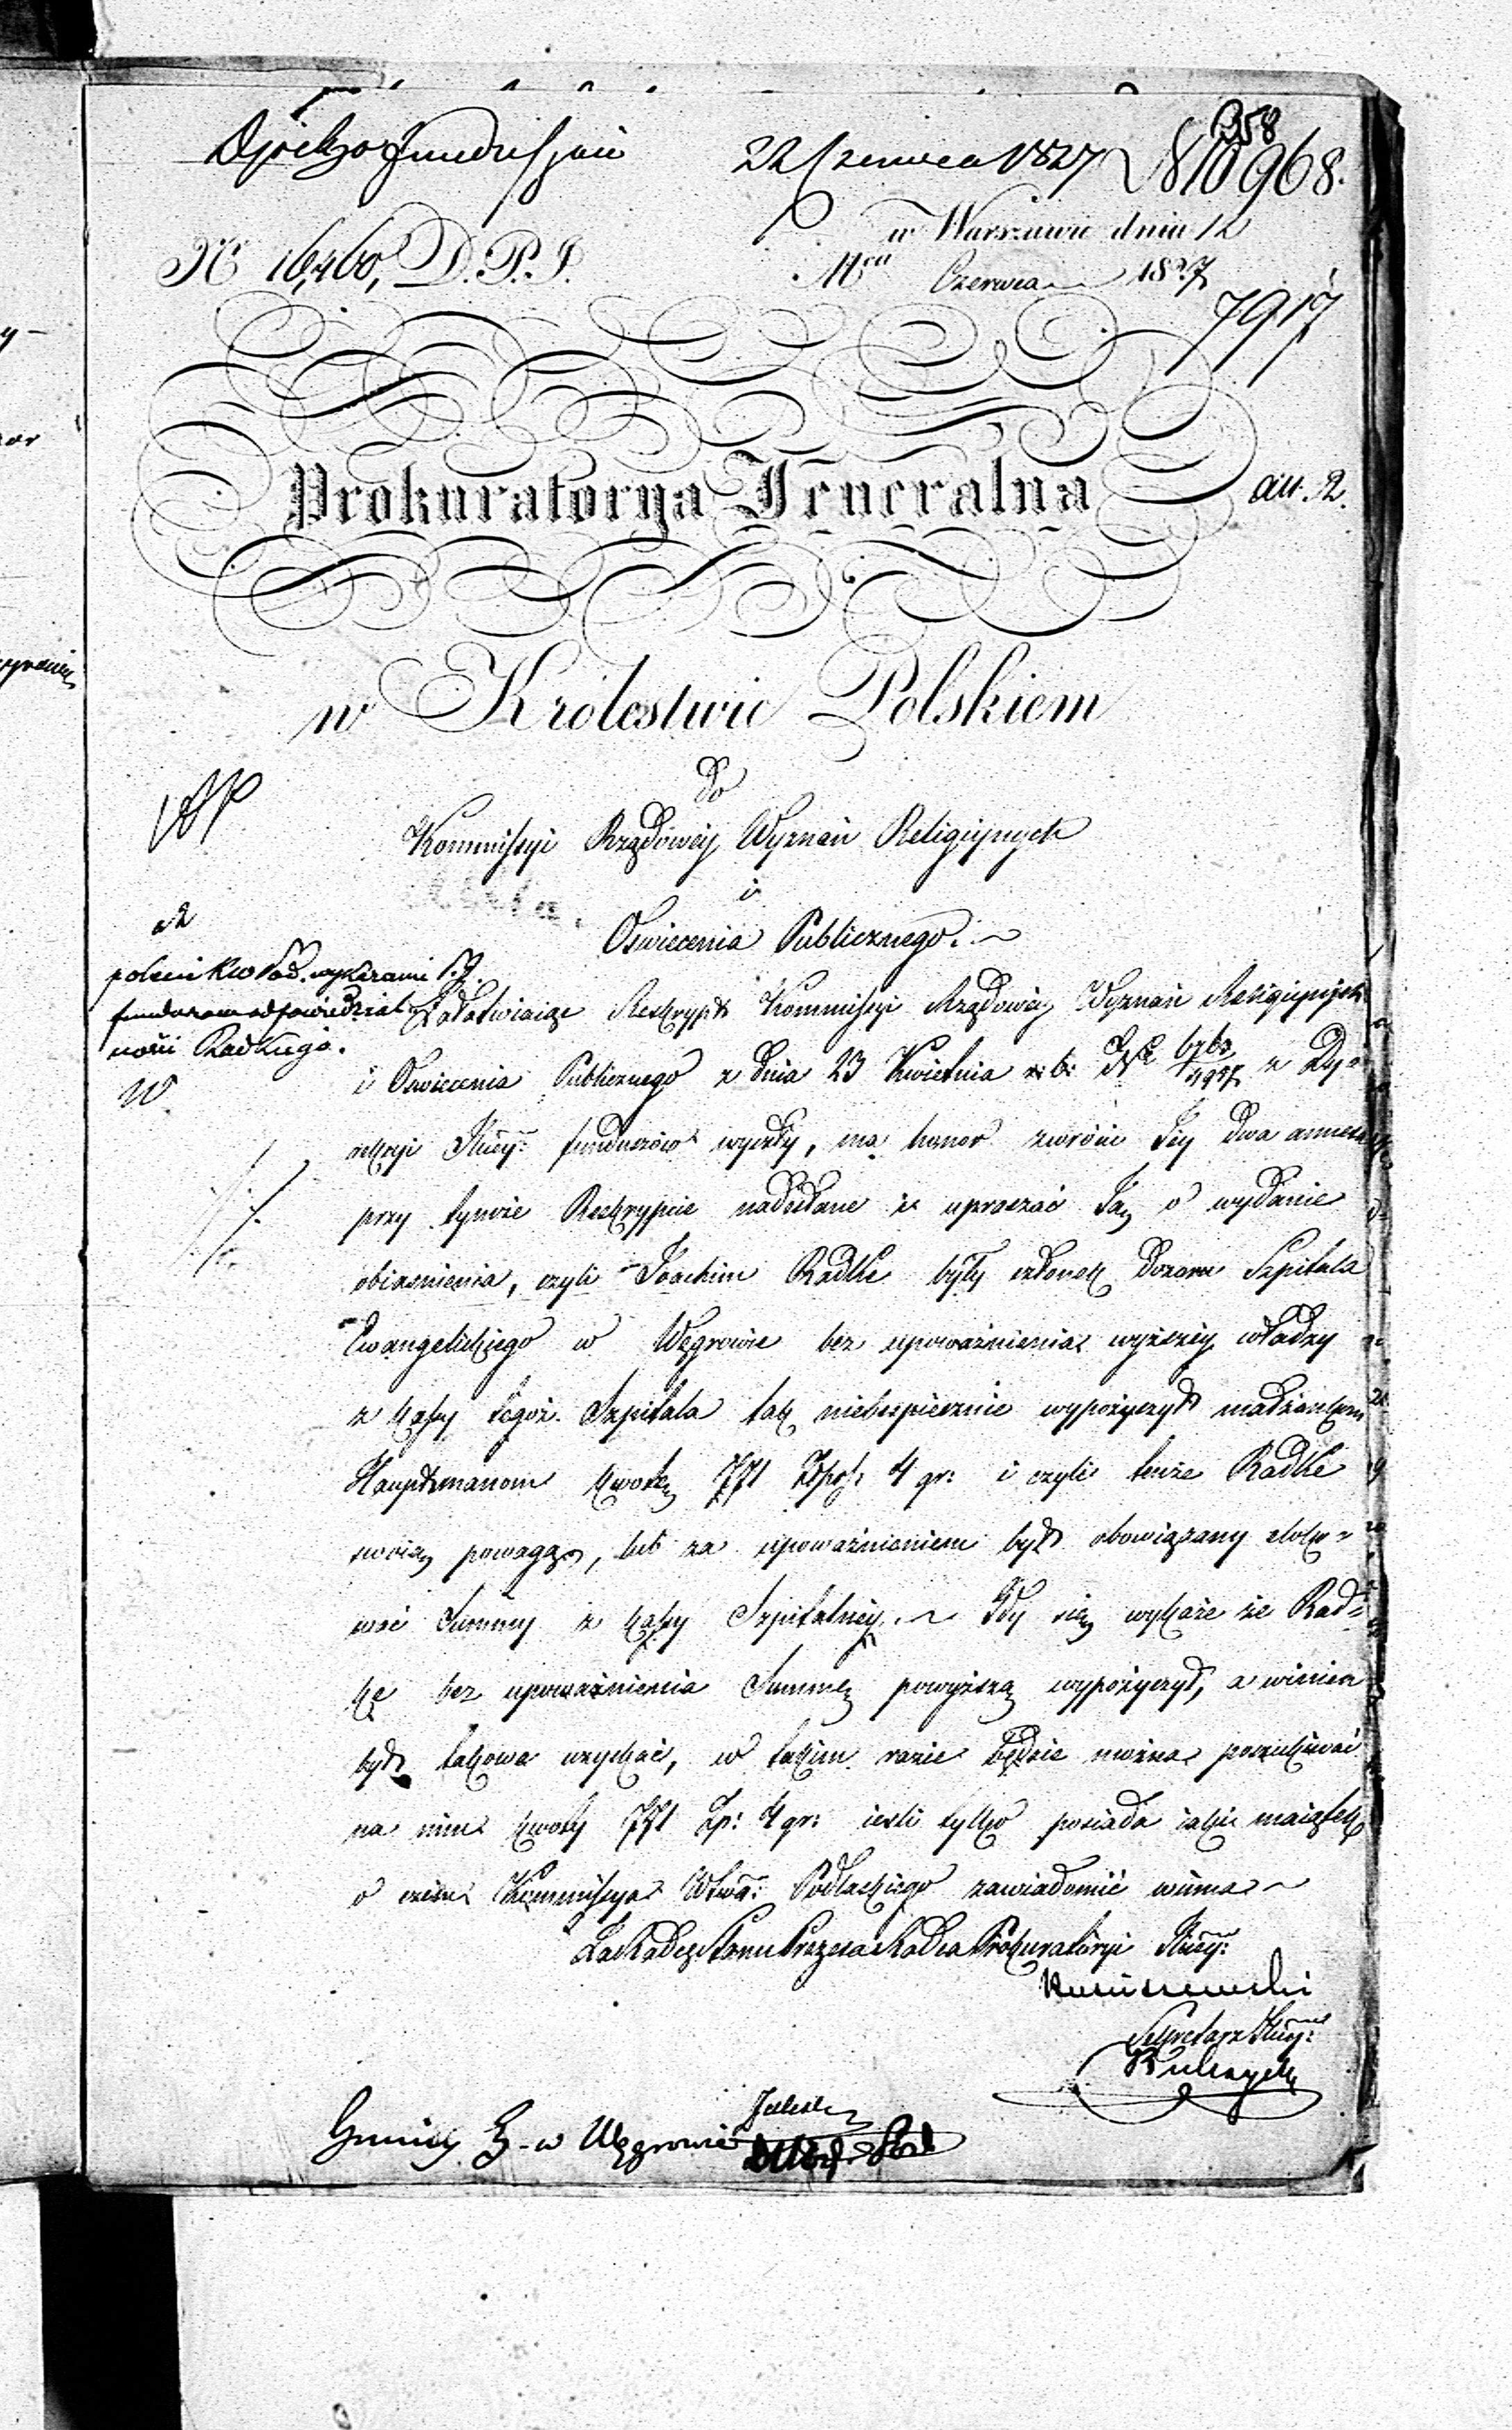 Dyrekcya Funduszów 22 Czerwca 1827 N 10968.
358
w Warszawie dnia 12
Nº 16,460, D.P.J. Mca Czerwca 1827
7917
Prokuratorya Jeneralna
an. 2.
w Królestwie Polskiem
do
Kommissyi Rządowéy Wyznań Religiynych
i
Oswiecenia Publicznego.
poleci Kw Pod.
funduszom odpowiedzial
ności Radkiego.
Załatwiaiąc Reskrypt Kommissyi Rządowéy Wyznań Religiynych
i Oswiecenia Publicznego z dnia 23 Kwietnia r: b: Nº z Dy=
rekcyi Jlney: funduszów wyszły, ma honor zwrócić Jey dwa annexa
przy tymże Reskrypcie nadesłane i upraszać Ją o wydanie
obiasnienia, czyli Joachim Radtke były członek Dozoru Szpitala
Ewangelickiego w Węgrowie bez upoważnienia wyższéy władzy
z kassy tegoż Szpitala tak niebespiecznie wypożyczył małżonkom
Hauptmanom kwotę 771 Złpol: 4 gr: i czyli tenże Radtke
swoią powagą, lub za upoważnieniem był obowiązany eloko=
wać Summy z kassy Szpitalnéy. Gdy się wykaże że Rad=
ke bez upoważnienia Summę powyższą wypożyczył, a winien
był takowe uzyskać, w takim razie będzie można poszukiwać
na nim kwoty 771 Zp: 4 gr: iesli tylko posiada iaki maiątek
o czem Kommissya Wtwa: Podlaskiego zawiadomić winna
Za Radcę Stanu Prezesa Radca Prokuratoryi Jlney:
Sekretarz Jlny:
Gminy E. w Węgrowie